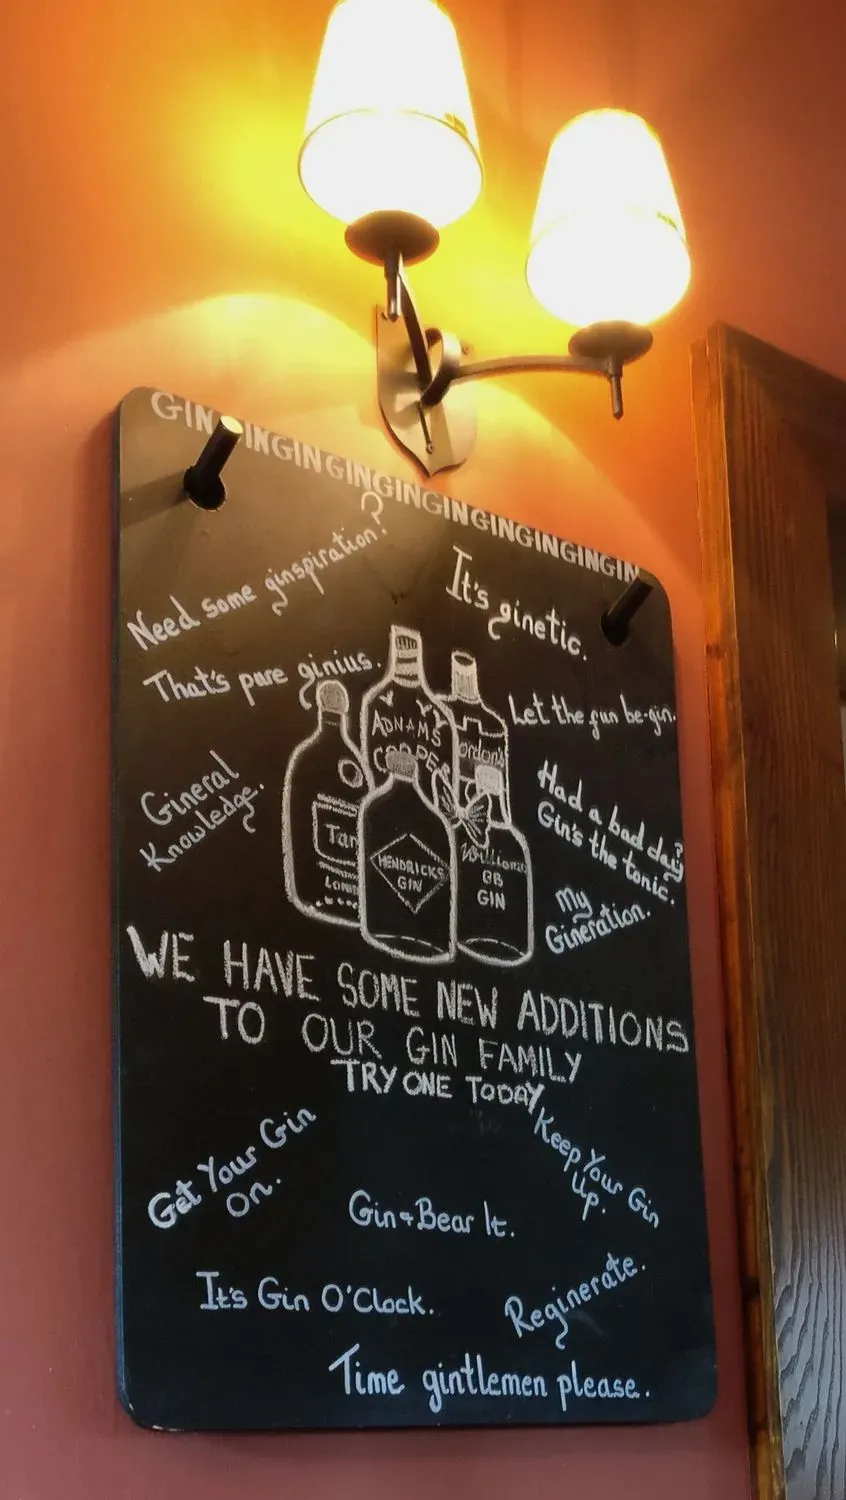 GIN GINGINGINGINGINGINGINGINGIN
Need some ginspiration?
It's ginetic.
That's pure ginius.
Let the fun be-gin.
Gineral
Knowledge.
Had a bad day?
Gin's the tonic.
My
Gineration.
ADNAMS
COPPER
ordon's
Tan
LOND
HENDRICKS
GIN
Williams
GB
GIN
WE HAVE SOME NEW ADDITIONS
TO OUR GIN FAMILY
TRY ONE TODAY
Get Your Gin
On.
Keep Your Gin
Up.
Gin & Bear It.
It's Gin O'Clock.
Reginerate.
Time gintlemen please.